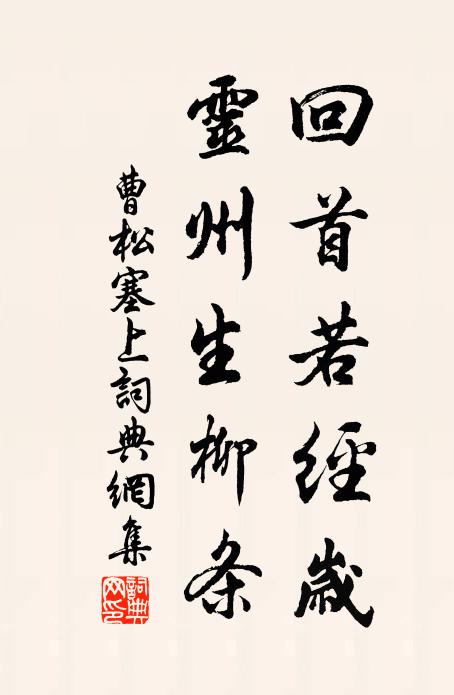 回首若經歲
靈州生柳条
曹松塞上詞典網集
詞典网印